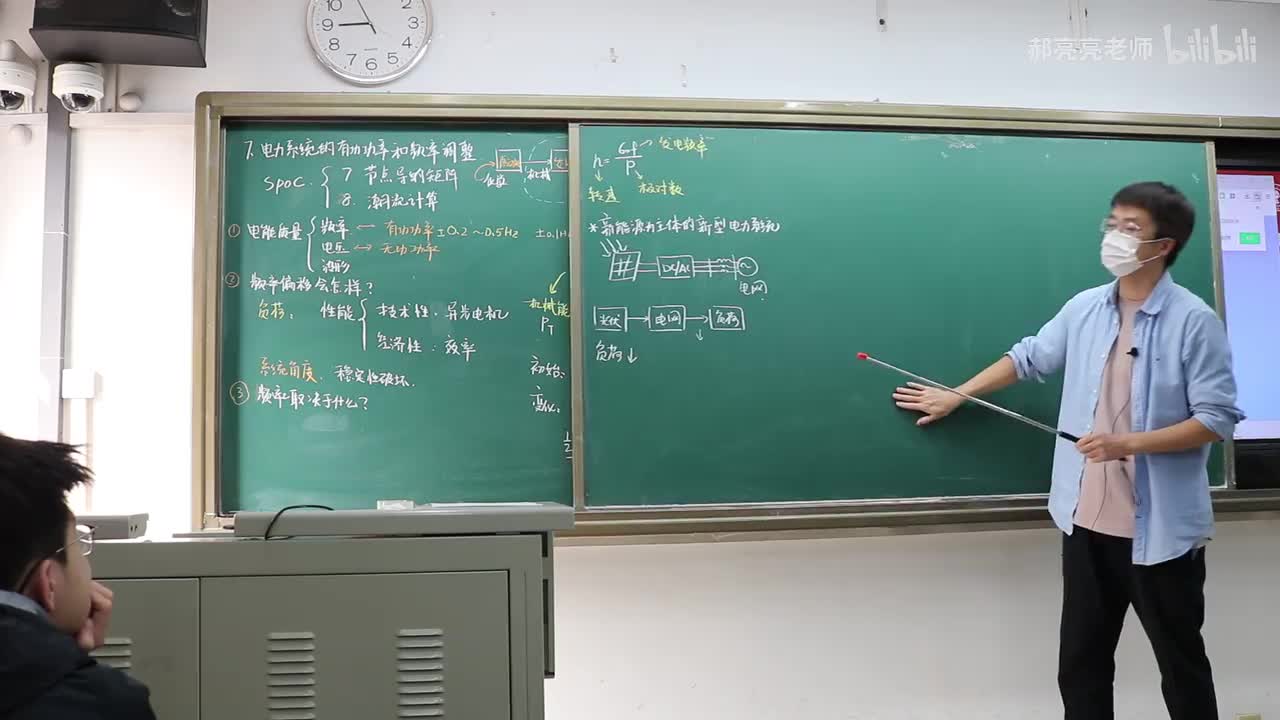 郝亮亮老师 bilibili
7. 电力系统的有功功率和频率调整
SPOC. 7 节点导纳矩阵
8. 潮流计算
① 电能质量 频率 ← 有功功率 ±0.2~0.5Hz ±0.1H
电压 ↔ 无功功率
波形
② 频率偏移会怎样?
负荷: 性能 技术性. 异步电机
经济性: 效率
系统角度. 稳定性破坏.
③ 频率取决于什么?
机械
机械能
PT
初始:
变化:
n = 60f/P 发电频率
转速 极对数
* 新能源为主体的新型电力系统
# DC/AC ~
电网
光伏 → 电网 → 负荷
负荷↓